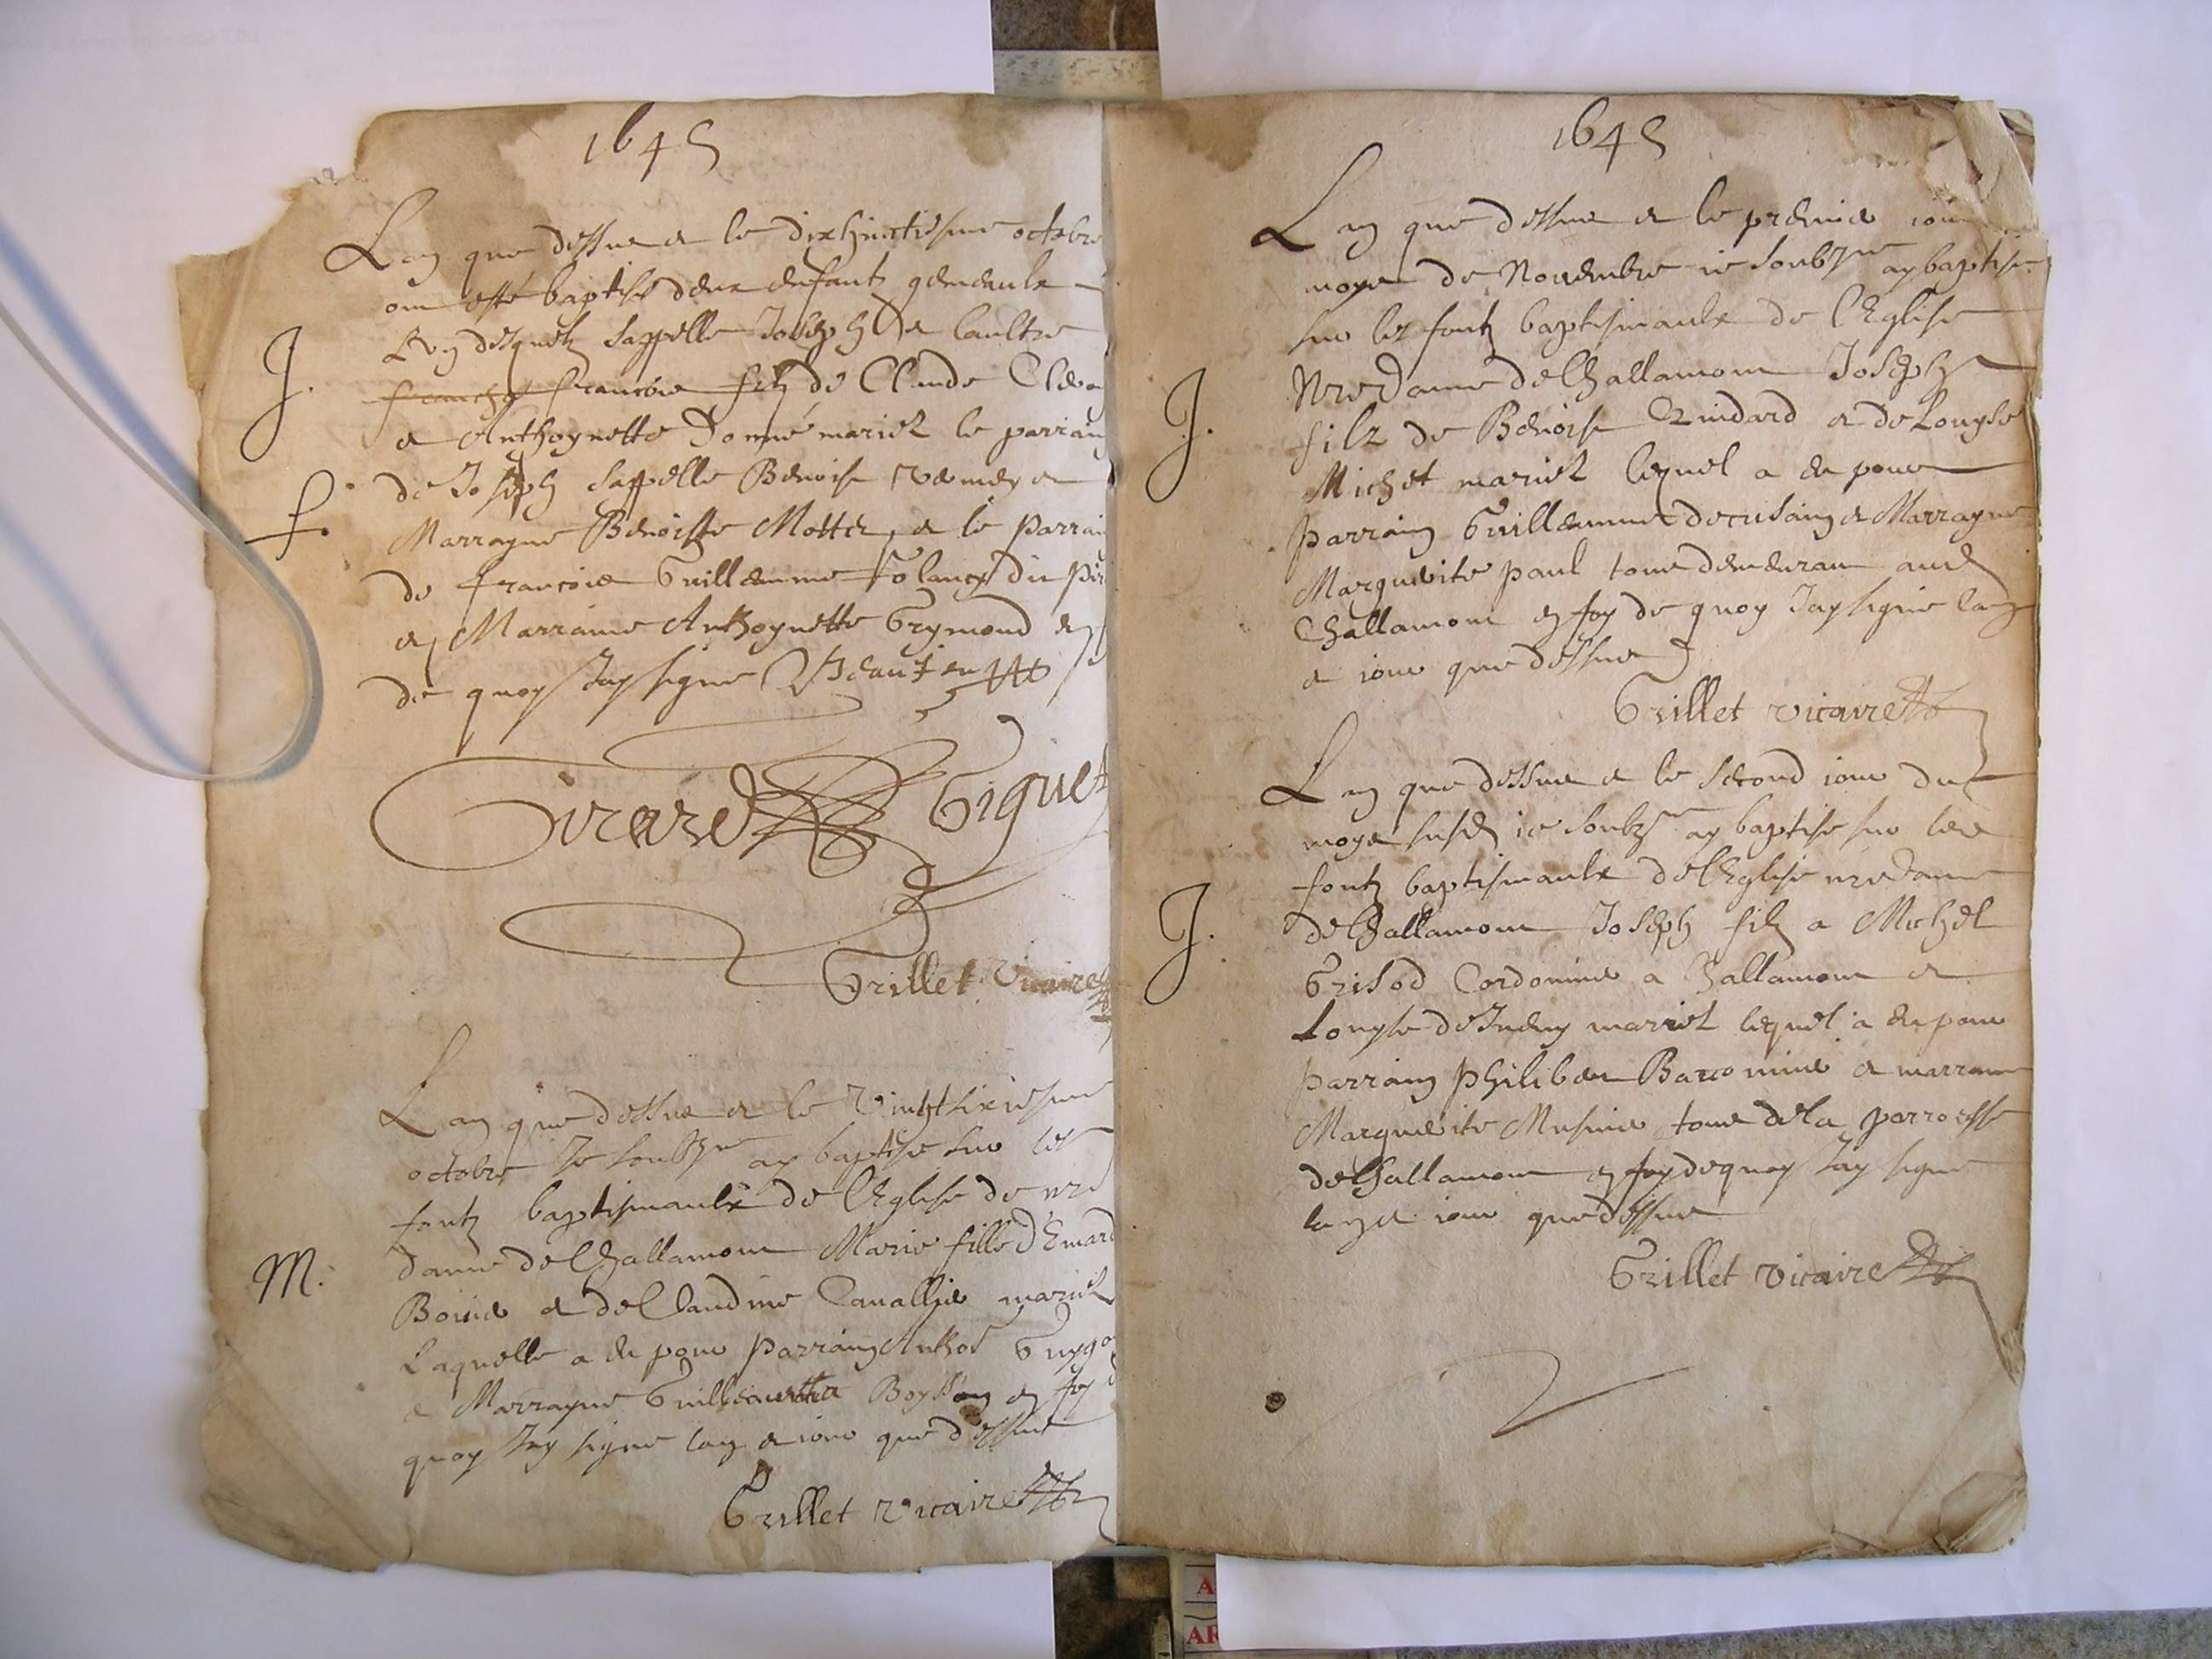 1645
Lan que dessus et le dixhuictiesme octobre
ont esté baptisé deux enfantz gemeaulx
Lvng desquelz sappelle Joseph et laultre
francois filz de Claude
et Anthoynette Donné mariez le parrain
de Joseph sappelle Benoist et
Marrayne Benoiste Mottet, et le Parrain
de francois Guillaumme folancy du
et Marraine Anthoynette Grymond en
de quoy Jay signé
J.
f.
Girard Giguet
Grillet Vicaire
Lan que dessus et le Vingtsixiesme
octobre Je soubzne ay baptisé sur les
fontz baptismaulx de lEglise de nre
dame de Challamont Marie fille dEmard
Boiuie et de Claudine Cauallie mariez
Laquelle a eu pour Parraing Anthoe
et Marrayne en foy d
quoy Jay signe lan et iour que dessus
M.
Grillet vicaire
1645
Lan que dessus et le premier iour
moys de Nouembre ie soubzne ay baptisé
sur les fontz baptismaulx de lEglise
Nre Dame de Challamont Joseph
filz de Benoist et de Louyse
Michet mariez lequel a eu pour
parraing Guillaumme decusaing et Marrayne
Marguerite Paul tous demeurant aud
Challamont en foy de quoy Jay signe lan
et iour que dessus
J.
Grillet vicaire
Lan que dessus et le second iour du
moys susd ie soubzne ay baptisé sur les
fontz baptismaulx de lEglise nre dame
de Challamont Joseph filz a Michel
Grisod Cordonnier a Challamont et
Louyse mariez lequel a eu pour
parraing Philibert et marraine
Marguerite Musnier tous de la parroesse
de Challamont en foy de quoy Jay signe
lan et iour que dessus
J.
Grillet vicaire
A
AR